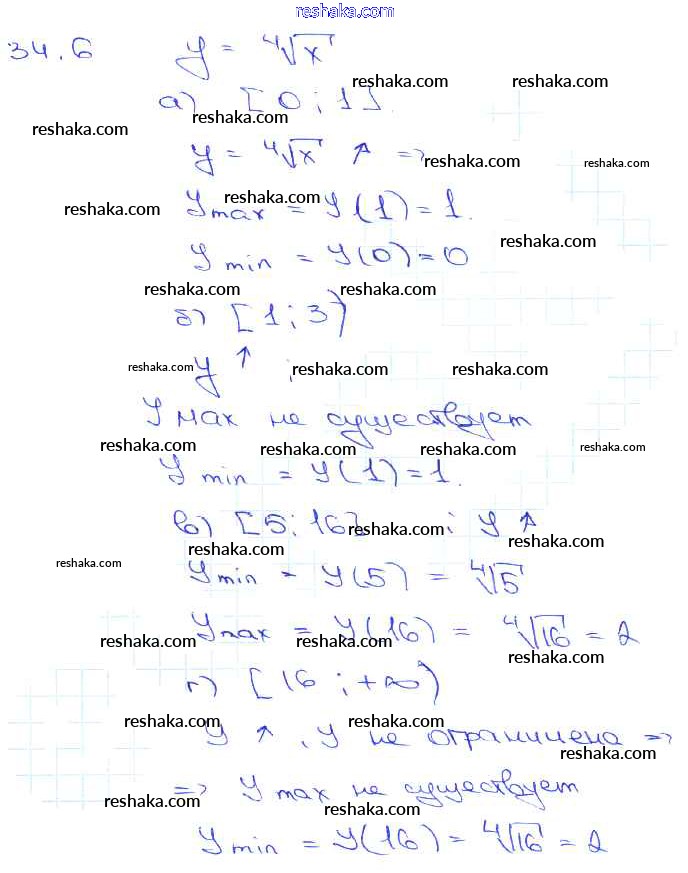 reshaka.com
34.6 y = ⁴√x
reshaka.com reshaka.com
а) [0 ; 1].
reshaka.com reshaka.com
y = ⁴√x ↑ =>
reshaka.com reshaka.com
reshaka.com reshaka.com
y max = y(1) = 1.
reshaka.com
y min = y(0) = 0
reshaka.com reshaka.com
б) [1 ; 3)
reshaka.com reshaka.com reshaka.com
y ↑ ;
y мах не существует
reshaka.com reshaka.com reshaka.com reshaka.com
y min = y(1) = 1.
в) [5; 16] ; y ↑
reshaka.com reshaka.com
reshaka.com
y min = y(5) = ⁴√5
y max = y(16) = ⁴√16 = 2
reshaka.com reshaka.com reshaka.com
г) [16 ; +∞)
reshaka.com reshaka.com
y ↑, y не ограничена =>
reshaka.com
=> y max не существует
reshaka.com reshaka.com
y min = y(16) = ⁴√16 = 2